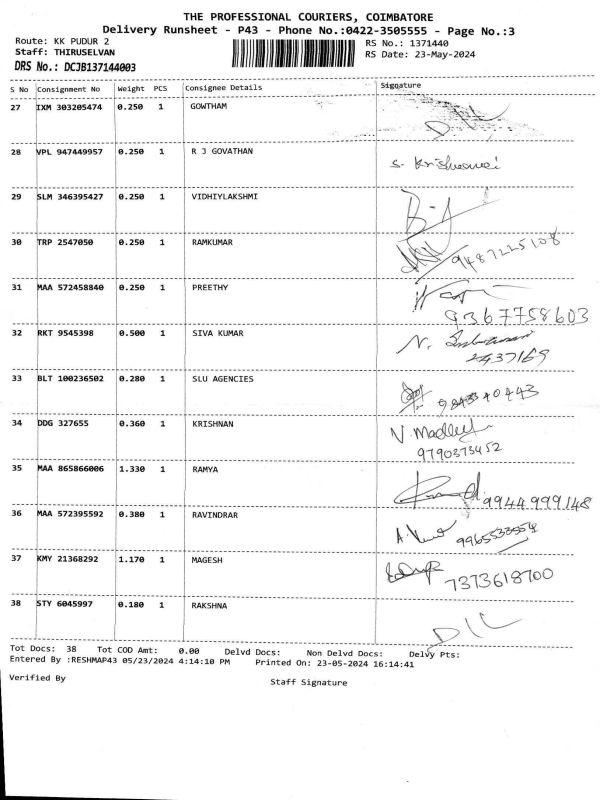 THE PROFESSIONAL COURIERS, COIMBATORE
Delivery Runsheet - P43 - Phone No.:0422-3505555 - Page No.:3
Route: KK PUDUR 2 RS No.: 1371440
Staff: THIRUSELVAN RS Date: 23-May-2024
DRS No.: DCJB137144003
S No Consignment No Weight PCS Consignee Details Signature
27 IXM 303205474 0.250 1 GOWTHAM
D/L
28 VPL 947449957 0.250 1 R J GOVATHAN
S.
29 SLM 346395427 0.250 1 VIDHIYLAKSHMI
30 TRP 2547050 0.250 1 RAMKUMAR
9487225108
31 MAA 572458840 0.250 1 PREETHY
9367758603
32 RKT 9545398 0.500 1 SIVA KUMAR
N.
33 BLT 100236502 0.280 1 SLU AGENCIES
34 DDG 327655 0.360 1 KRISHNAN
N.
9790373452
35 MAA 865866006 1.330 1 RAMYA
9944999148
36 MAA 572395592 0.380 1 RAVINDRAR
A. Kumar
37 KMY 21368292 1.170 1 MAGESH
7373618700
38 STY 6045997 0.180 1 RAKSHNA
D/L
Tot Docs: 38 Tot COD Amt: 0.00 Delvd Docs: Non Delvd Docs: Delvy Pts:
Entered By :RESHMAP43 05/23/2024 4:14:10 PM Printed On: 23-05-2024 16:14:41
Verified By Staff Signature